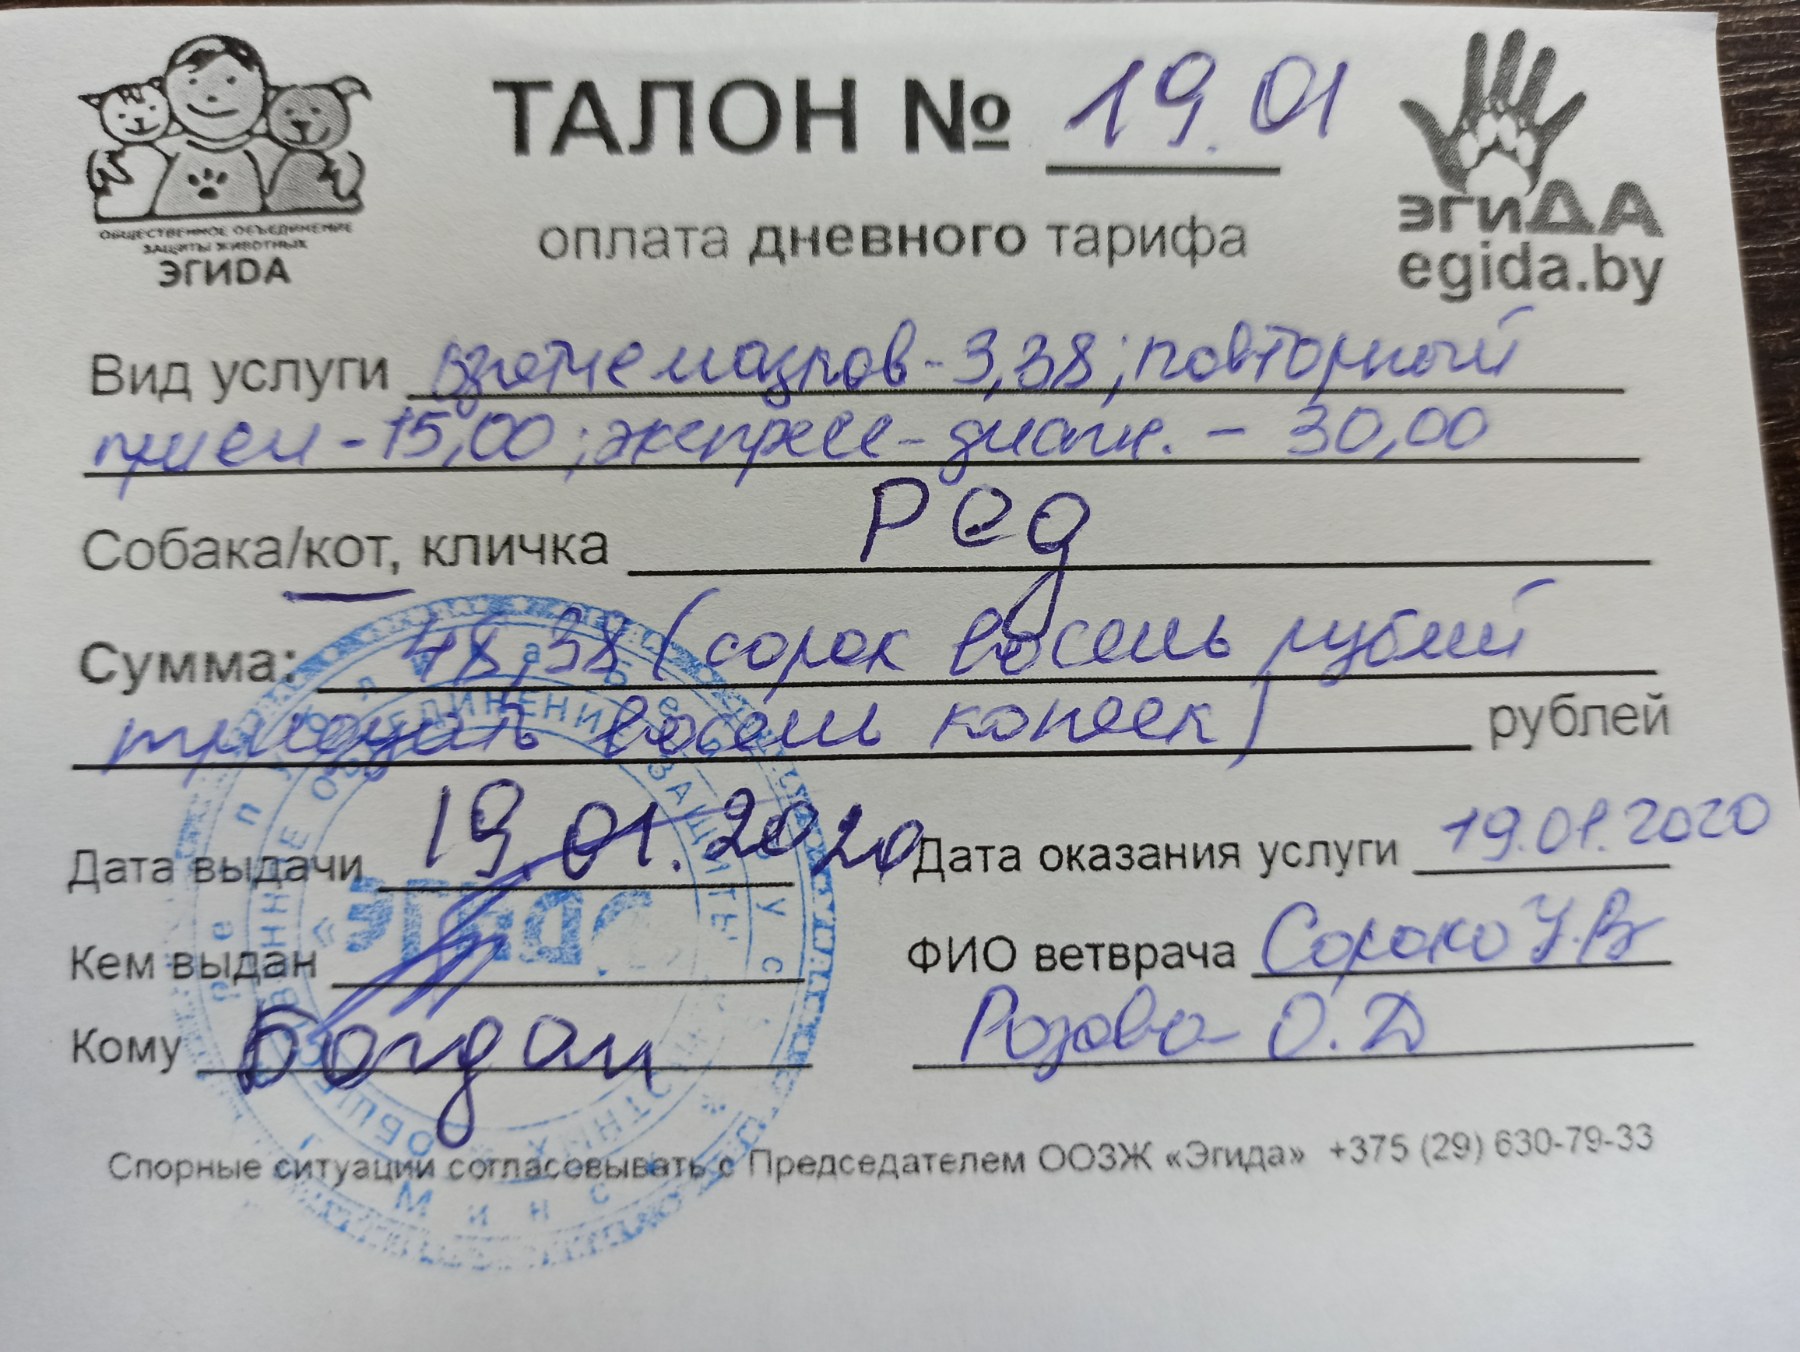 ТАЛОН № 19.01
ОБЩЕСТВЕННОЕ ОБЪЕДИНЕНИЕ
ЗАЩИТЫ ЖИВОТНЫХ
ЭГИDА
эгиДА
egida.by
оплата дневного тарифа
Вид услуги взятие мазков - 3,38; повторный
прием - 15,00; экспресс-диагн. - 30,00
Собака/кот, кличка Ред
Сумма: 48,38 (сорок восемь рублей
тридцать восемь копеек) рублей
Дата выдачи 19.01.2020 Дата оказания услуги 19.01.2020
Кем выдан ФИО ветврача Сороко У.В
Кому Богдан Розова О.Д
Спорные ситуации согласовывать с Председателем ООЗЖ «Эгида» +375 (29) 630-79-33
«ЭГИДА»
Минск